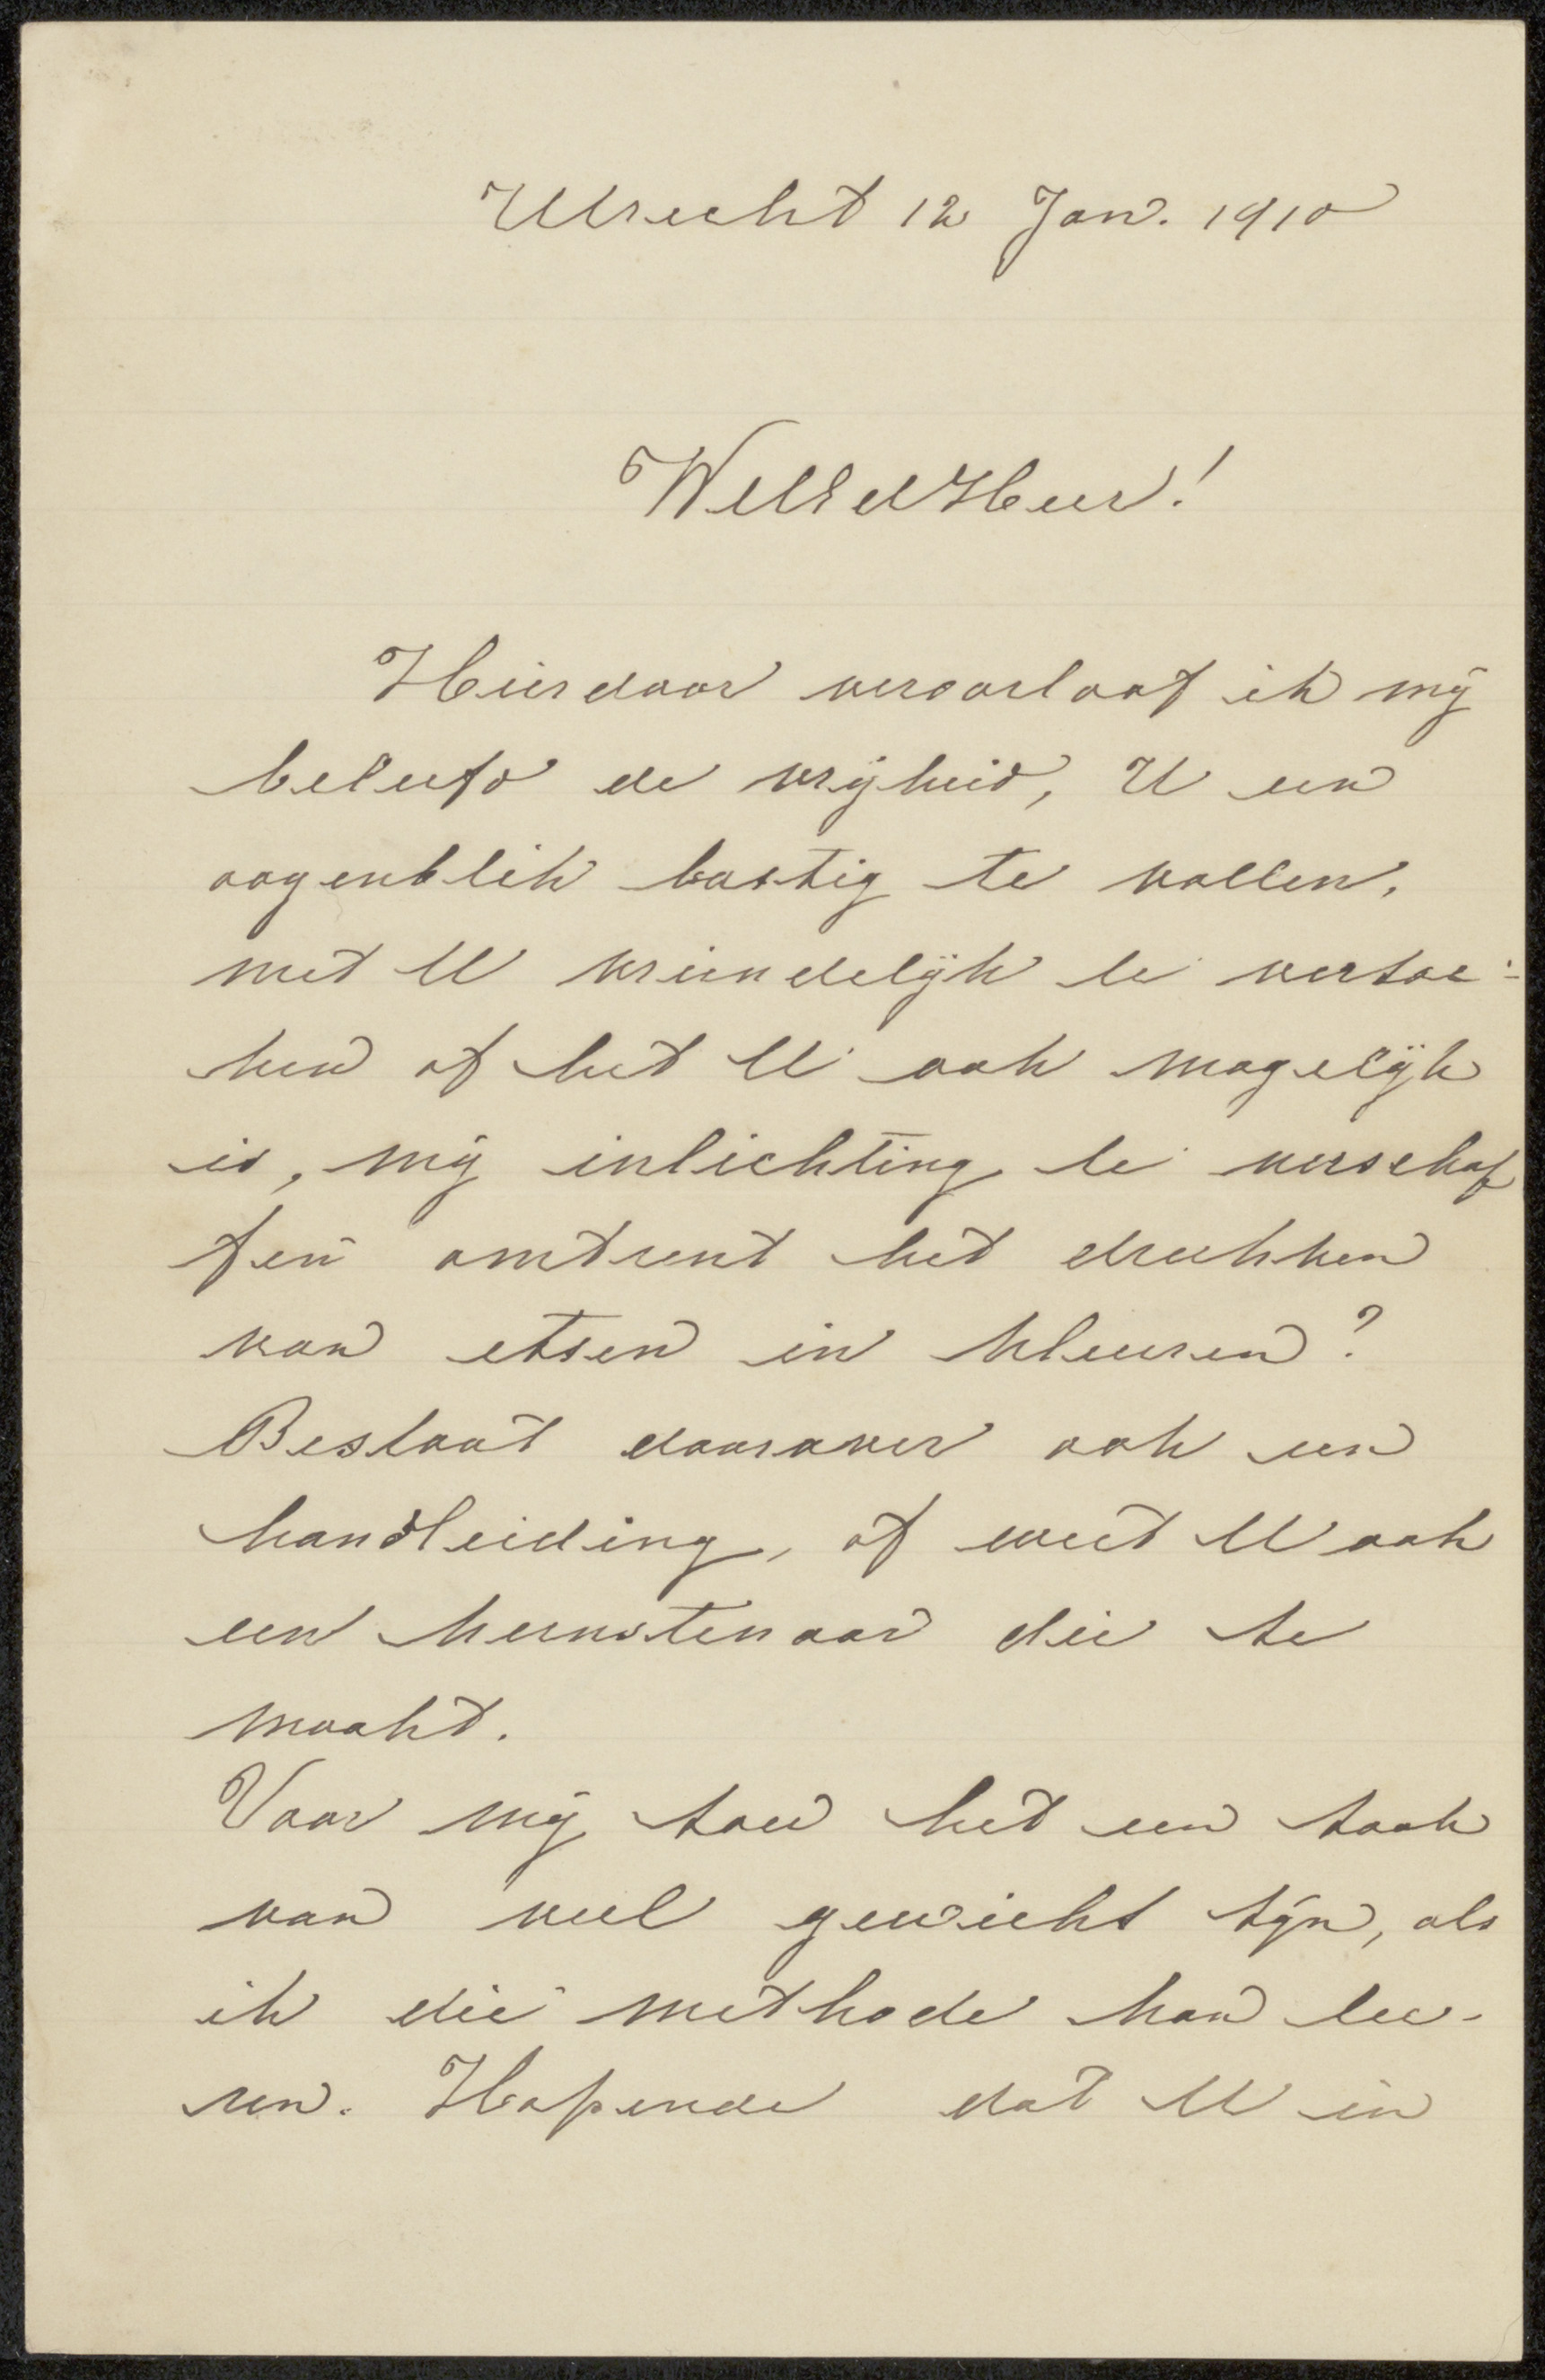 Utrecht 12 Jan. 1910
WelEdHeer!
Hierdoor veroorloof ik mij
beleefd de vrijheid, U een
oogenblik lastig te vallen,
met U vriendelijk te verzoe-
ken of het U ook mogelijk
is, mij inlichting te verschaf
fen omtrent het drukken
van etsen in kleuren?
Bestaat daarover ook een
handleiding, of weet U ook
een kunstenaar die ze
maakt.
Voor mij zou het een zaak
van veel gewicht zijn, als
ik die methode kan lee-
ren. Hopende dat U in